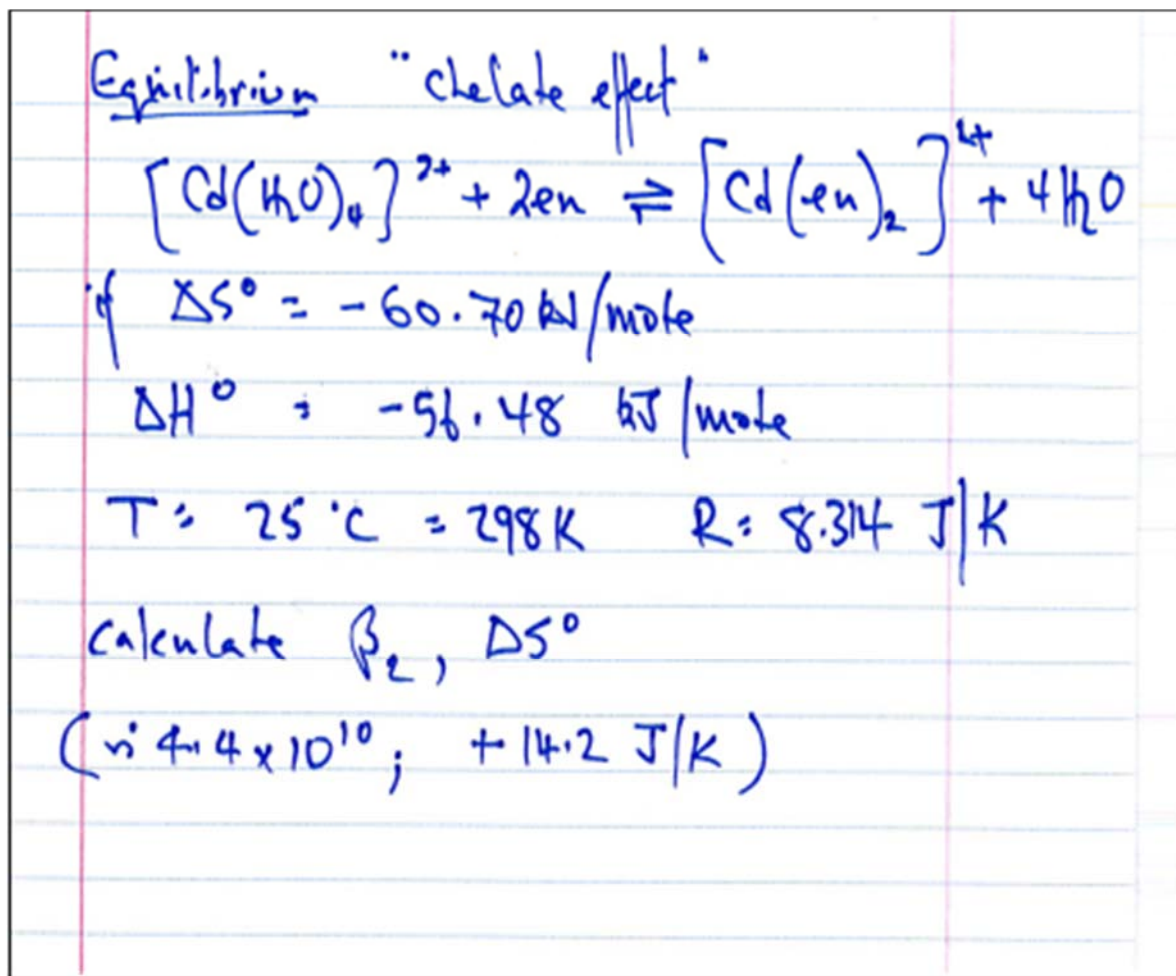 Equilibrium "chelate effect"
[Cd(H2O)4]²⁺ + 2en ⇌ [Cd(en)₂]⁴⁺ + 4H2O
if ΔS° = -60.70 kJ/mole
ΔH° = -56.48 kJ/mole
T = 25°C = 298K R = 8.314 J/K
Calculate β₂, ΔS°
(~ 4.4 x 10¹⁰; + 14.2 J/K)